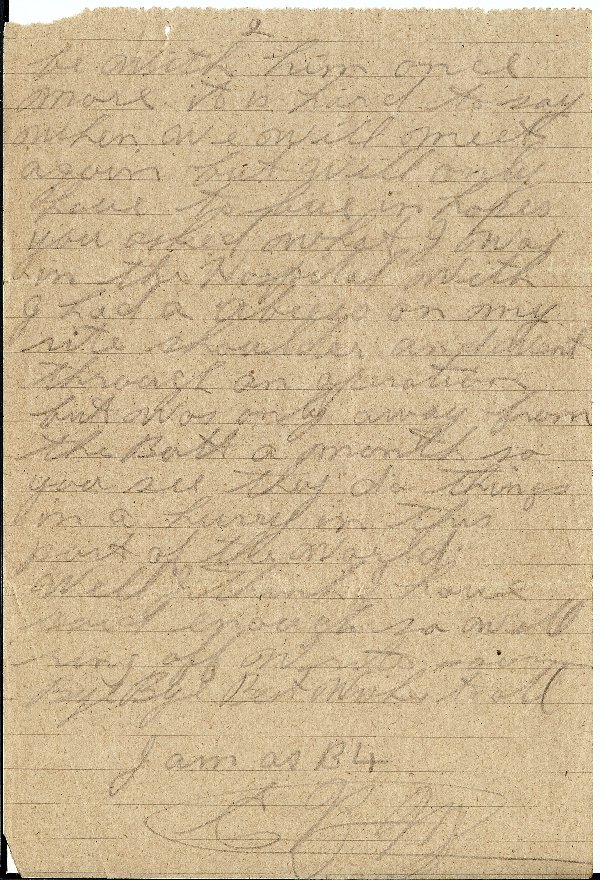 2
be with him once
more it is hard to say
when we will meet
again but will only
have to live in hopes
you asked what I was
in the Hospital with
I had a abcess on my
rite shoulder and went
through an operation
but was only away from
the Batt a month so
you see they do things
in a hurry in this
part of the world.
Well I think I have
said enough so will
ring off write soon
Bye Best Wishes to all
I am as B4